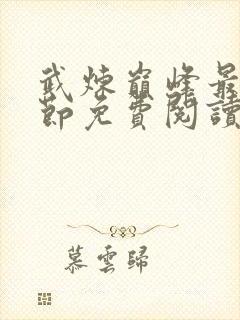 武炼巅峰最
節免費閱讀
慕雲歸